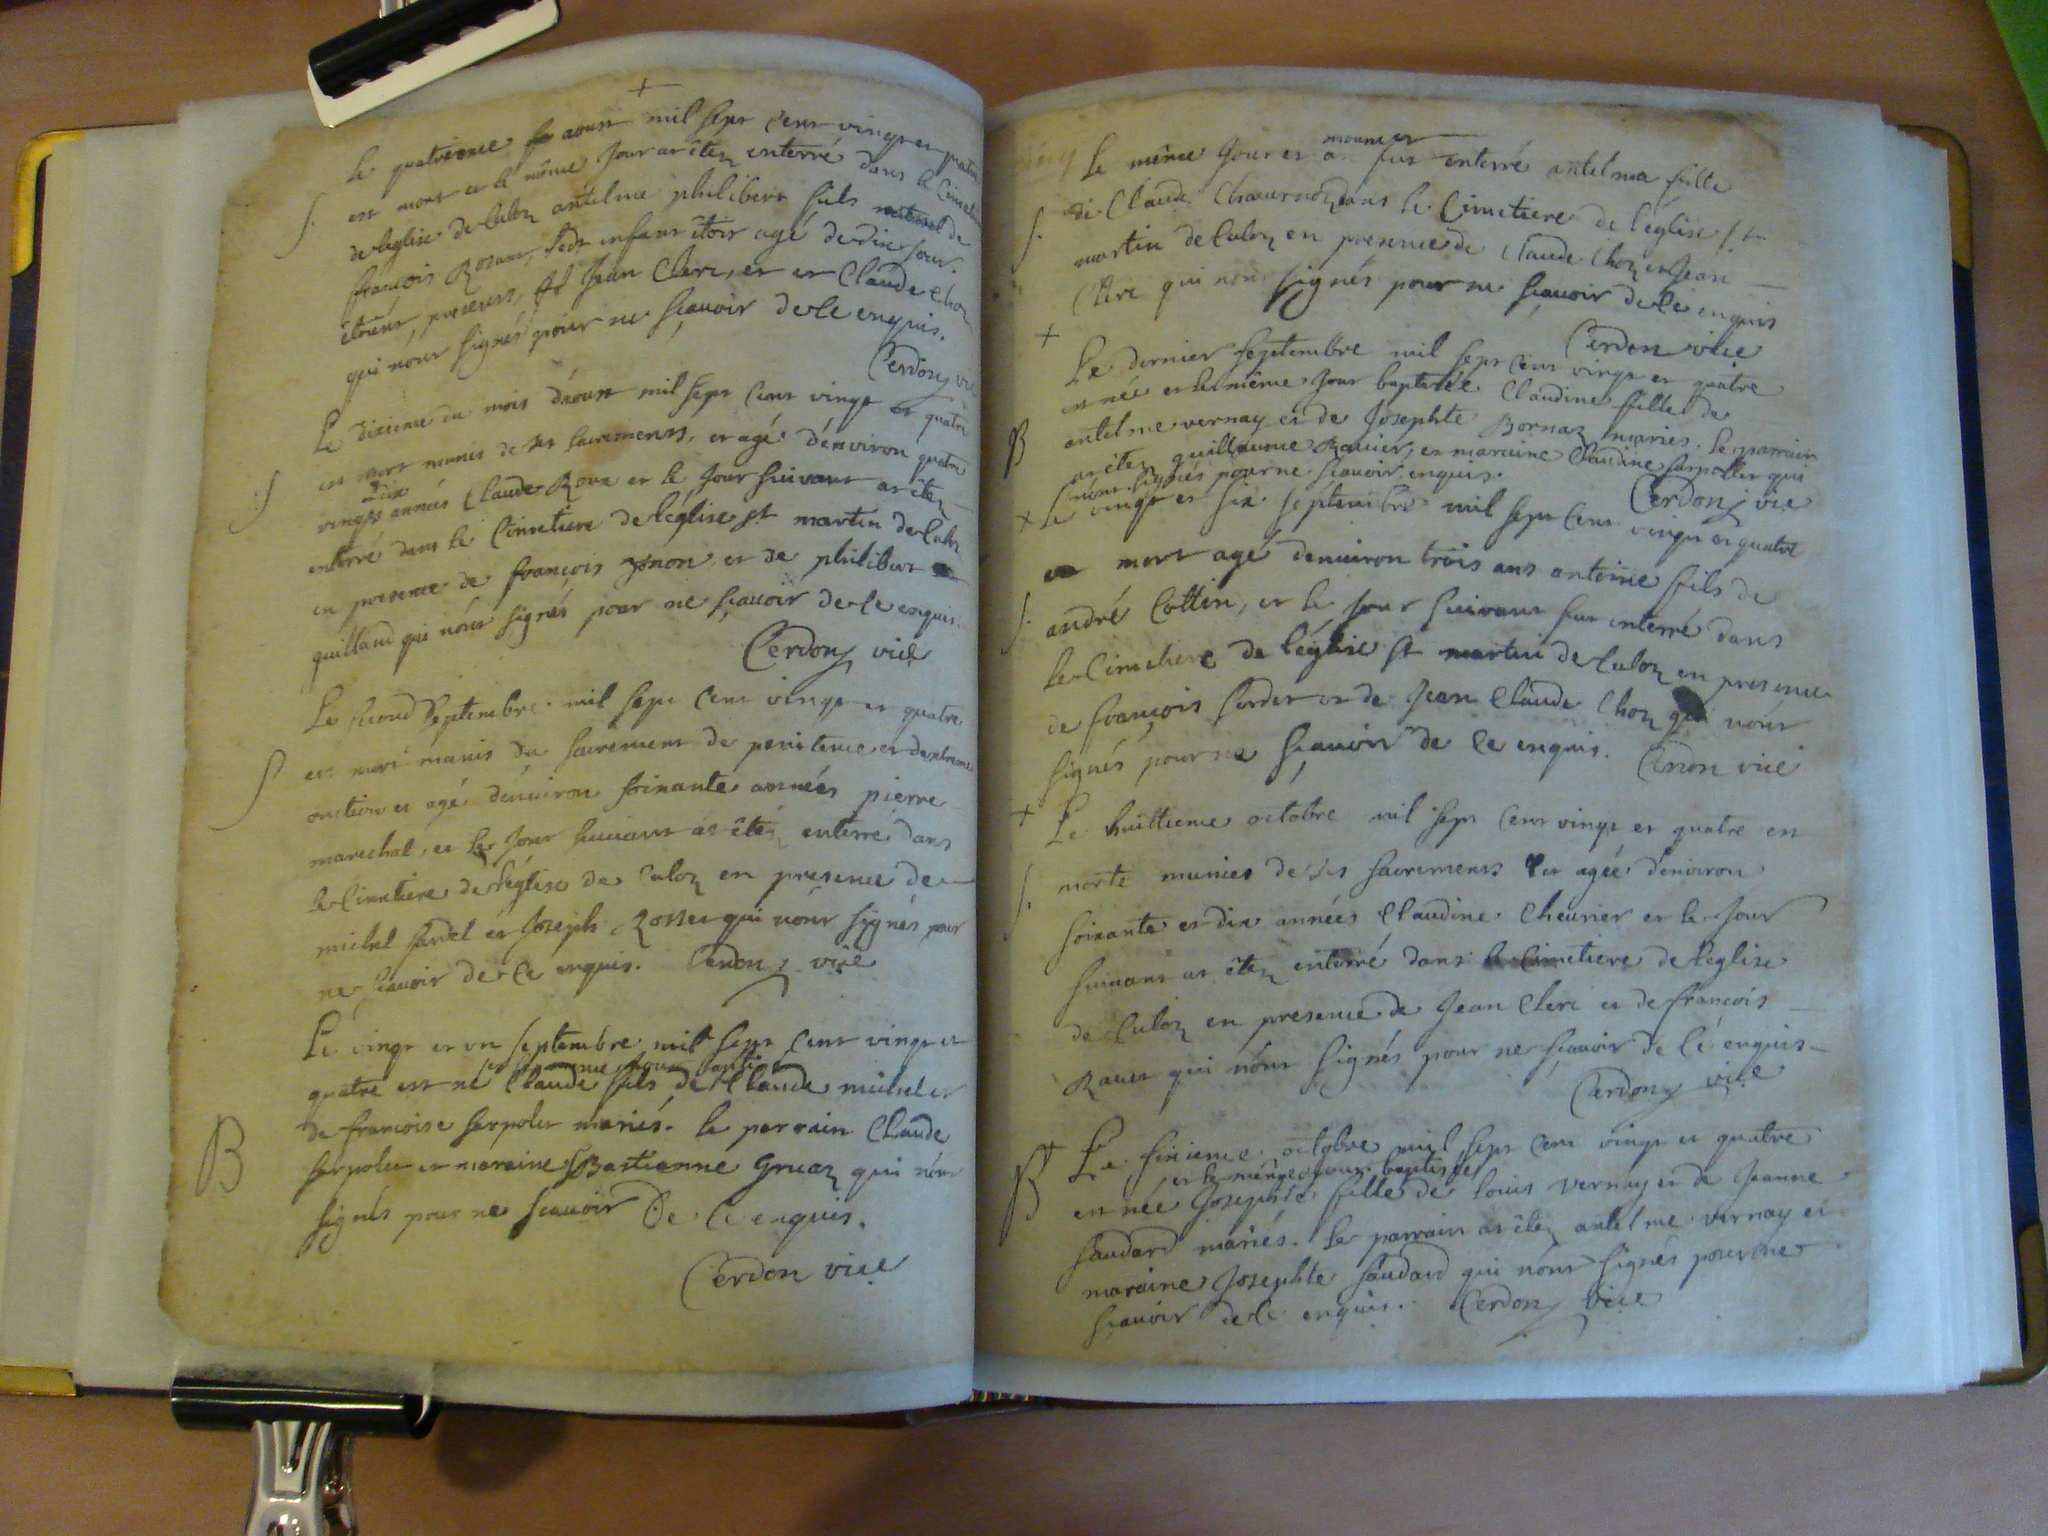 +
Le quatrieme aoust mil sept cent vingt et quatre
S. est mort et le même jour at êtez enterré dans le Cimetiere
de leglise de Culoz antelme philibert fils naturel de
françois Rozan, ledt enfant êtoit agé de dix jour.
êtoient, presents, Jean Clerc, et Claude Choz
qui n'ont signés pour ne sçavoir de le enquis.
Cerdon, vic
Le dixieme du mois d'aoust mil sept cent vingt et quatre
S est mort munis de ses sacrements, et agé d'environ quatre
dix
vingts années Claude Roux et le jour suivant at êtez
enterré dans le Cimetiere de leglise st martin de Culoz
en presence de françois et de philibert
guilland qui n'ont signés pour ne sçavoir de le enquis.
Cerdon, vice
Le second septembre mil sept cent vingt et quatre
S est mort munis du sacrement de penitence et d'extreme
onction et agé d'environ soixante années pierre
marechal, et le jour suivant at êtez enterré dans
le Cimetiere de l'église de Culoz en presence de
michel sardel et Joseph Rosset qui n'ont signés pour
ne sçavoir de le enquis. Cerdon, vice
Le vingt et un septembre mil sept cent vingt et
et le meme jour baptise
quatre est né Claude fils de Claude michel et
de francoise serpolet mariés. le parrain Claude
B serpolet et maraine Bastianne Gruaz qui n'ont
signés pour ne sçavoir De le enquis.
Cerdon vice
mourut
Le même jour et an fut enterré antelma fille
S. de Claude dans le Cimetiere de l'église st
martin de Culoz en presence de Claude Choz et Jean
Clerc qui n'ont signés pour ne sçavoir de le enquis
Cerdon vice
+ Le dernier septembre mil sept cent vingt et quatre
est née et le même jour baptisée Claudine fille de
B antelme vernay et de Josephte Bornaz mariés. le parrain
at êtez guillaume Ravier, et maraine Claudine serpollet qui
n'ont signés pour ne sçavoir enquis. Cerdon, vice
+ Le vingt et six septembre mil sept cent vingt et quatre
est mort agé d'environ trois ans antoine fils de
S. andré Cottin, et le jour suivant fut enterré dans
le Cimetiere de l'église st martin de Culoz en presence
de françois sordet et de Jean Claude Choz qui n'ont
signés pour ne sçavoir de le enquis. Cerdon vice
+ Le huittieme octobre mil sept cent vingt et quatre est
S. morte munies de ses sacrements et agée d'environ
soixante et dix années Claudine Chevrier et le jour
suivant at êtez enterré dans le Cimetiere de l'eglise
de Culoz en presence de Jean Clerc et de francois
Ravet qui n'ont signés pour ne sçavoir de le enquis
Cerdon, vice
+ Le sixieme octobre mil sept cent vingt et quatre
et le même jour baptisée
B est née Josephte fille de louis vernay et de Jeanne
saudard mariés. le parrain at êtez antelme vernay et
maraine Josephte saudard qui n'ont signés pour ne
sçavoir de le enquis. Cerdon, vice